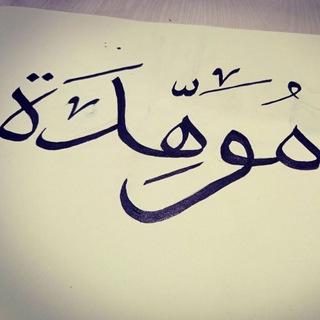 مُوَهِّدَة